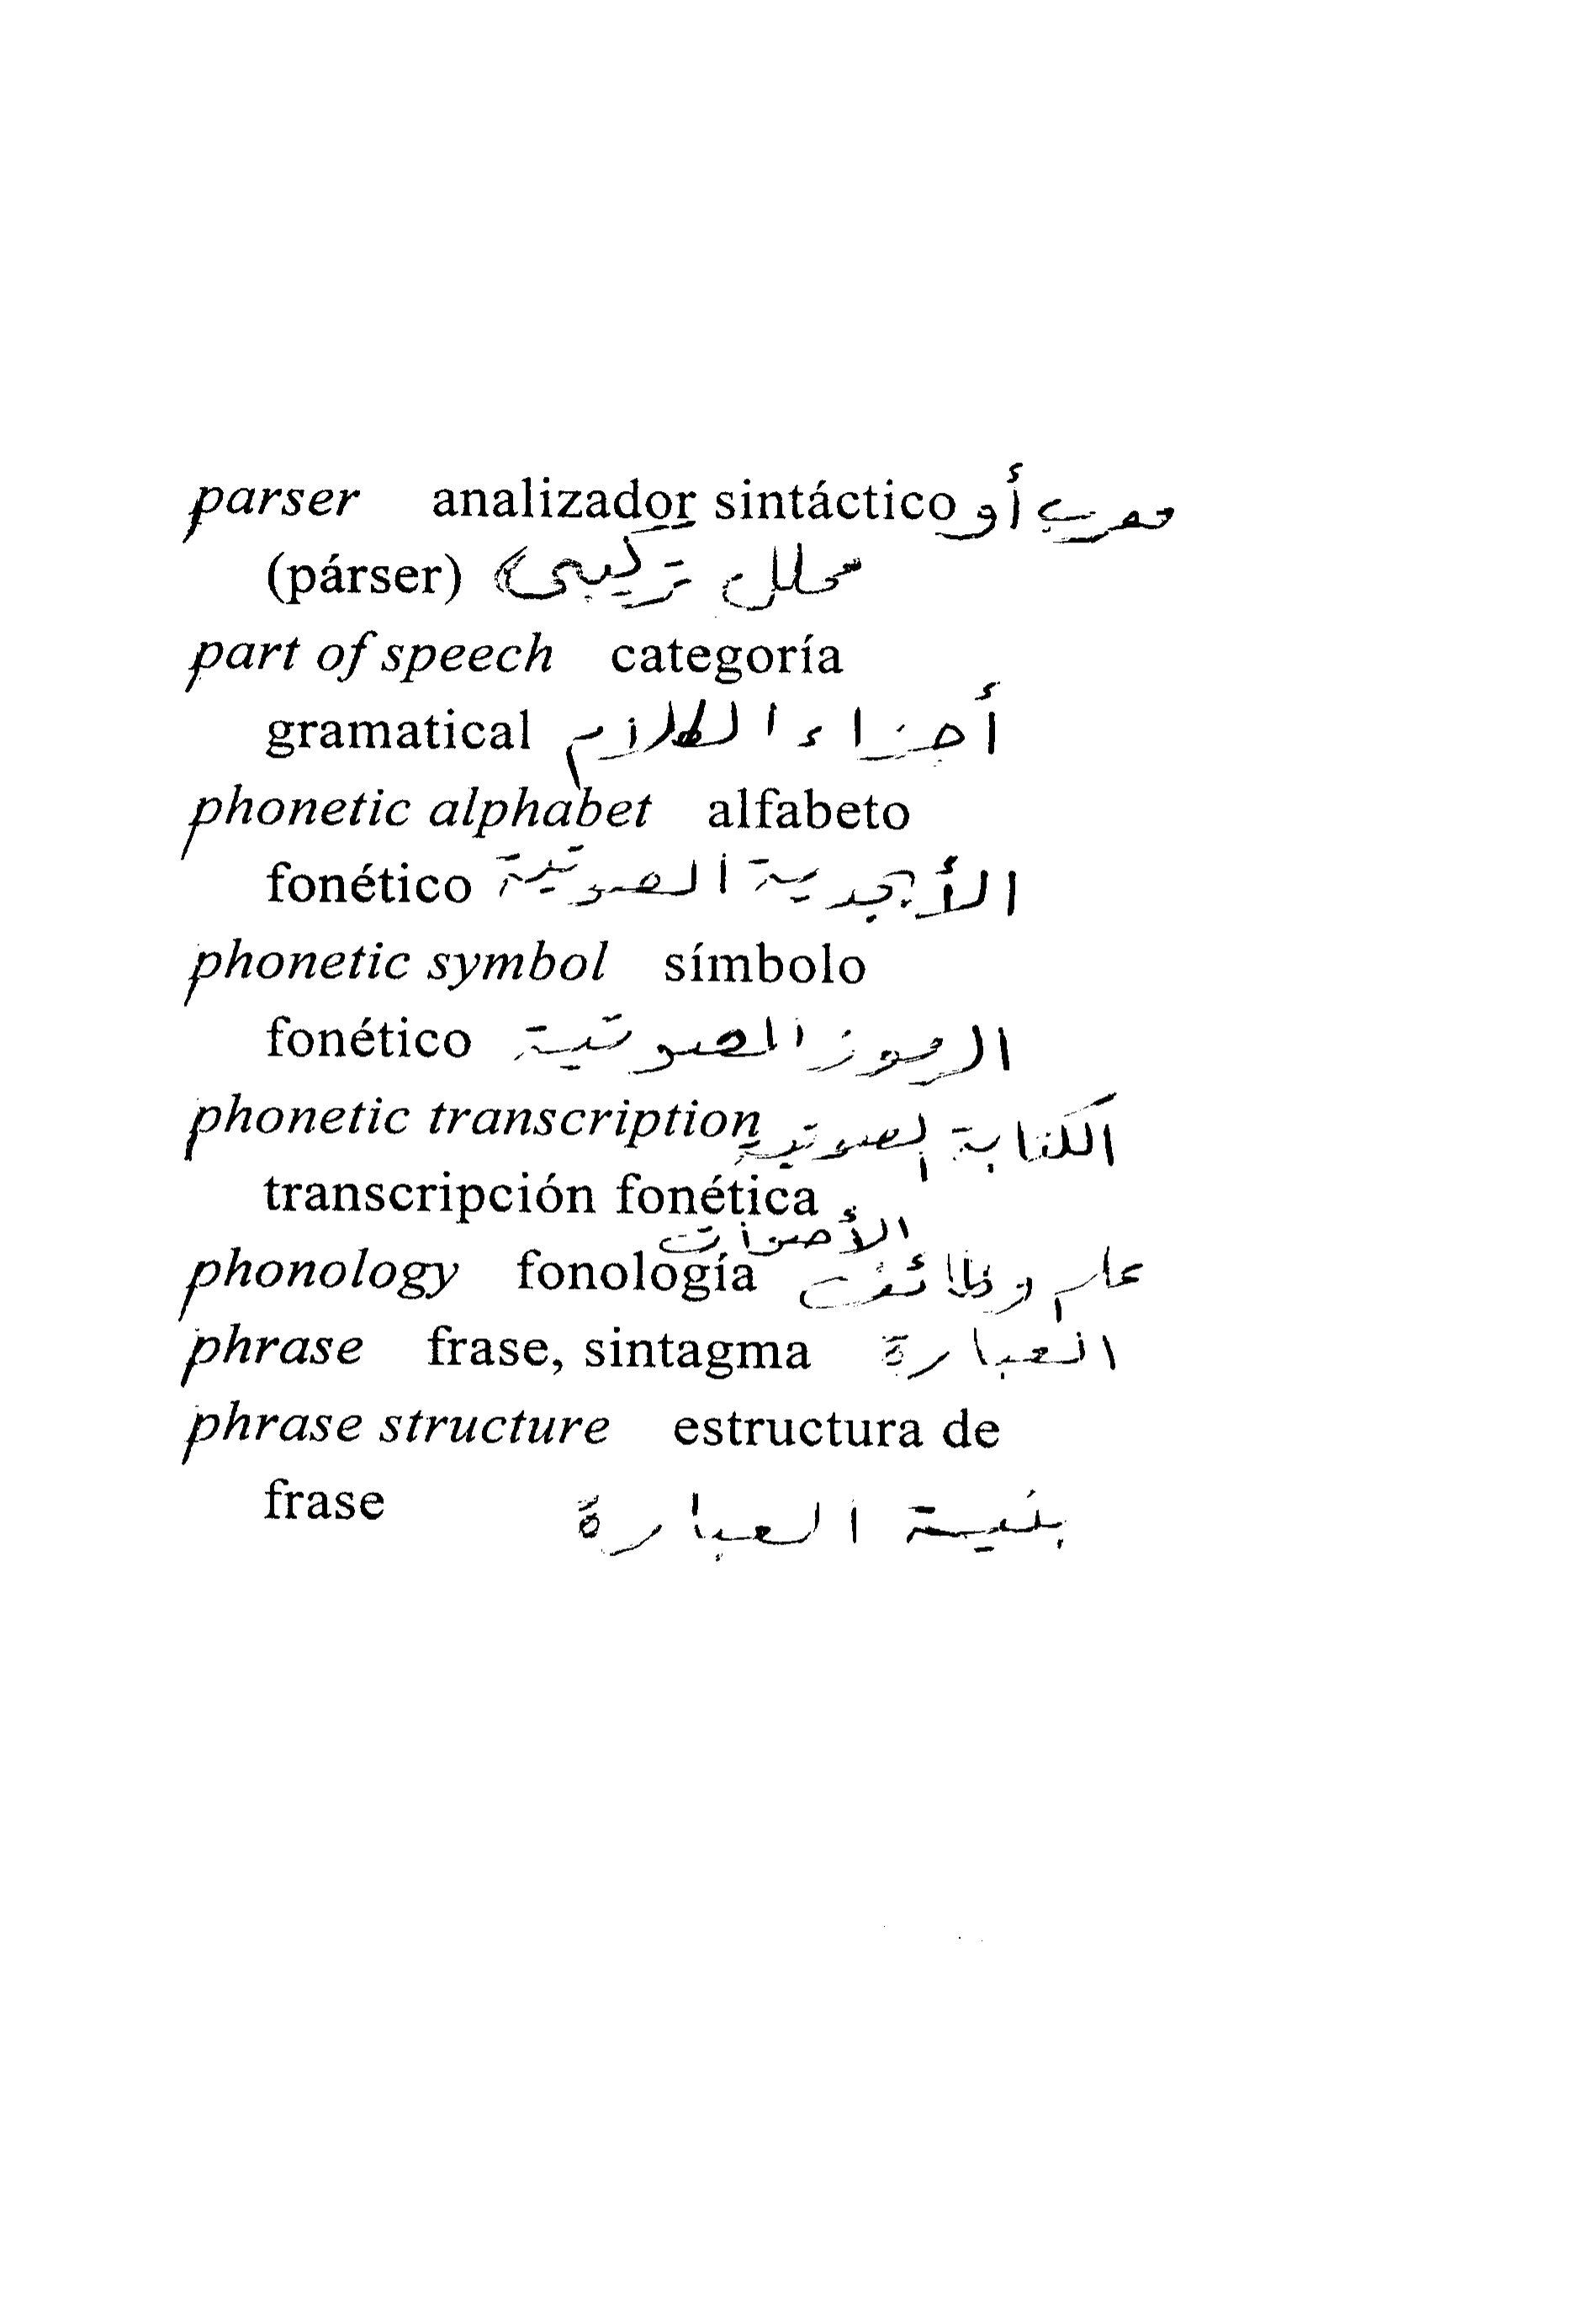 parser analizador sintáctico معرب أو
(párser) محلل تركيبي
part of speech categoría
gramatical أجزاء الكلام
phonetic alphabet alfabeto
fonético الأبجدية الصوتية
phonetic symbol símbolo
fonético الرموز الصوتية
phonetic transcription الكتابة الصوتية
transcripción fonética
الأصوات
phonology fonología علم وظائف
phrase frase, sintagma العبارة
phrase structure estructura de
frase بنية العبارة